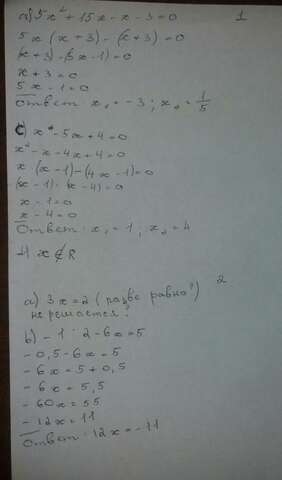 a) 5x² + 15x - x - 3 = 0
1
5x (x + 3) - (x + 3) = 0
(x + 3) - (5x - 1) = 0
x + 3 = 0
5x - 1 = 0
Ответ: x₁ = -3; x₂ = 1/5
c) x² - 5x + 4 = 0
x² - x - 4x + 4 = 0
x · (x - 1) - (4x - 1) = 0
(x - 1) · (x - 4) = 0
x - 1 = 0
x - 4 = 0
Ответ: x₁ = 1; x₂ = 4
x ∉ R
2
a) 3x = 2 (разве равно?)
не решается?
b) - 1 : 2 - 6x = 5
- 0,5 - 6x = 5
- 6x = 5 + 0,5
- 6x = 5,5
- 60x = 55
- 12x = 11
Ответ: 12x = - 11